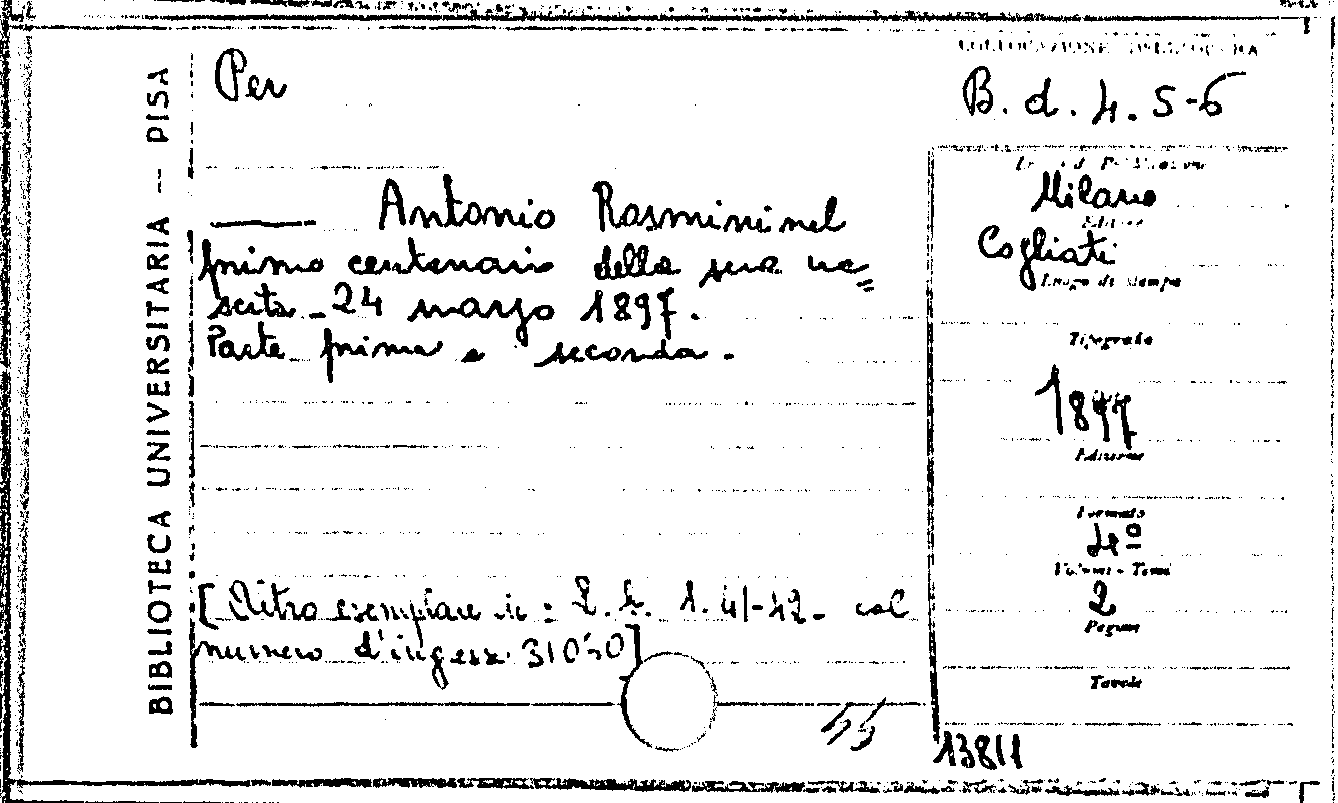 BIBLIOTECA UNIVERSITARIA — PISA
Per
COLLOCAZIONE DELL'OPERA
B. d. 4. 5-6
Antonio Rosmini nel
primo centenario della sua na=
scita - 24 marzo 1897.
Parte prima e seconda.
Milano
Editore
Cogliati
Luogo di stampa
Tipografo
1897
Edizione
Formato
4º
Volumi - Tomi
2
Pagine
Tavole
[Altro esemplare in: 1. 41-42 - col
numero d'ingess.
13811